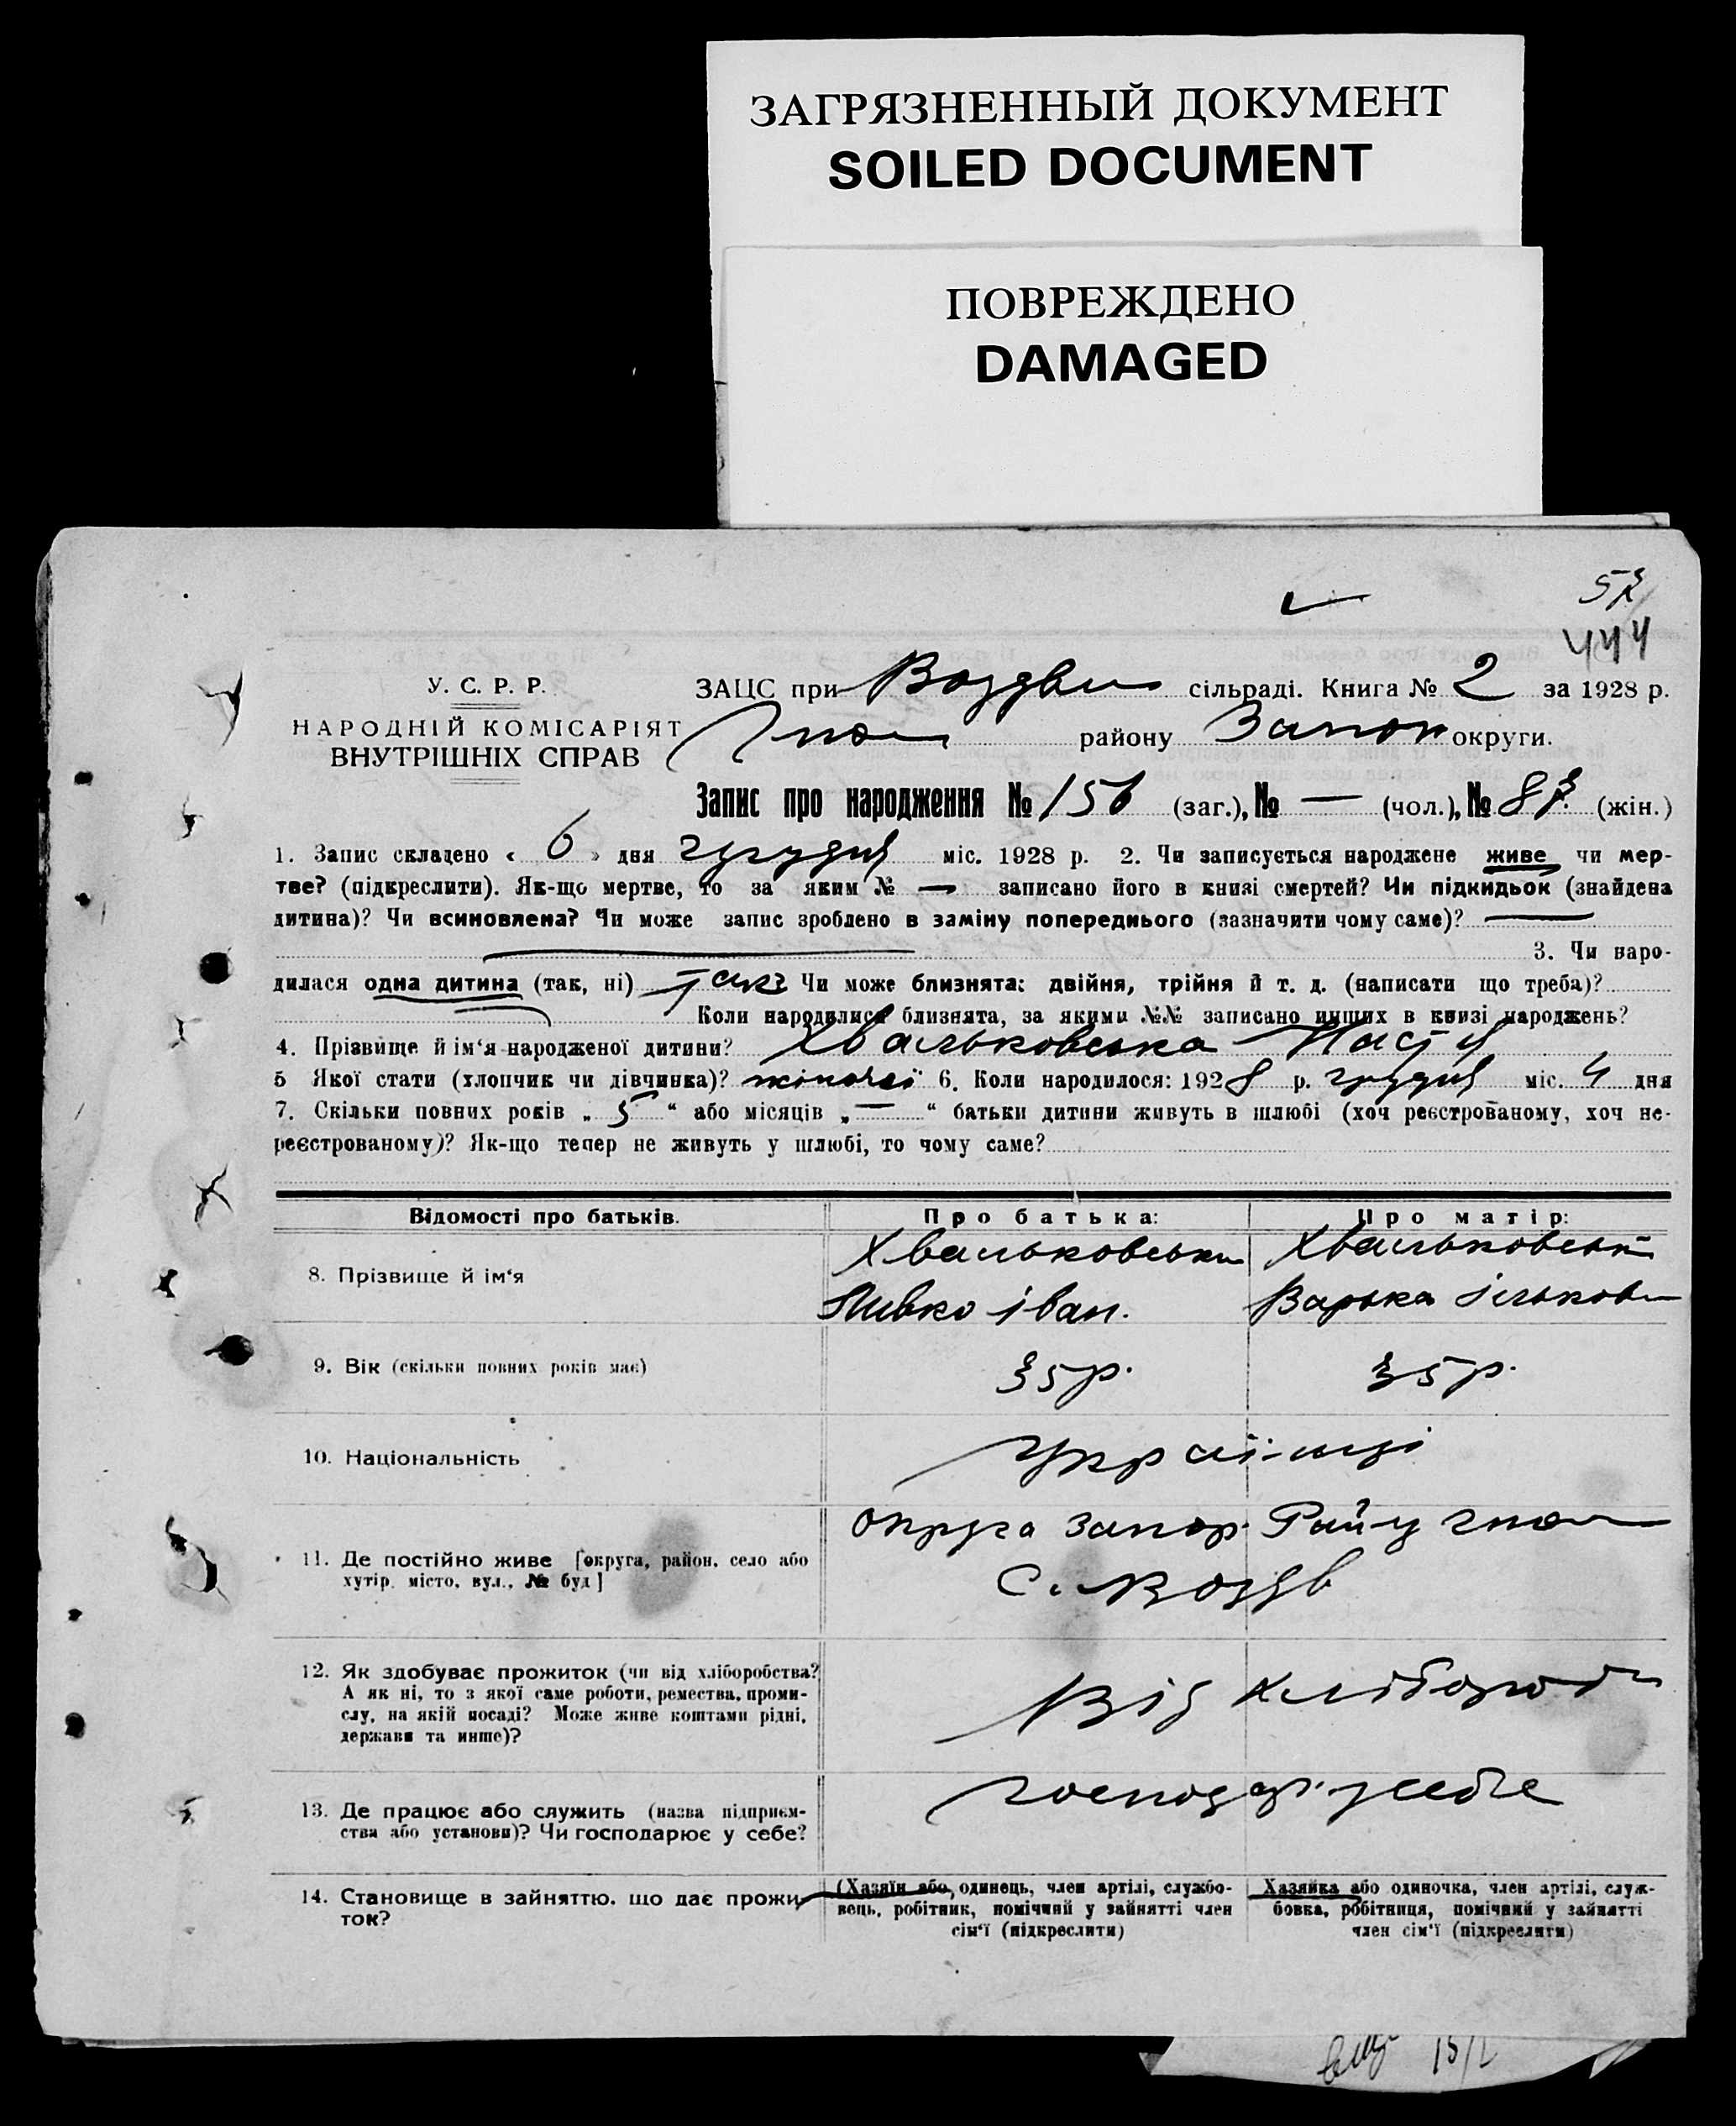 ЗАГРЯЗНЕННЫЙ ДОКУМЕНТ
SOILED DOCUMENT
ПОВРЕЖДЕНО
DAMAGED
444
У. С. Р. Р.
НАРОДНІЙ КОМІСАРІЯТ
ВНУТРІШНІХ СПРАВ
ЗАЦС при Воздви сільраді. Книга № 2 за 1928 р.
району Запор округи.
Запис про народження № 156 (заг.), № — (чол.), № 87 (жін.)
1. Запис складено « 6 » дня грудня міс. 1928 р. 2. Чи записується народжене живе чи мер-
тве? (підкреслити). Як-що мертве, то за яким № — записано його в книзі смертей? Чи підкидьок (знайдена
дитина)? Чи всиновлена? Чи може запис зроблено в заміну попереднього (зазначити чому саме)? —
3. Чи наро-
дилася одна дитина (так, ні) так Чи може близнята: двійня, трійня й т. д. (написати що треба)?
Коли народилися близнята, за якими №№ записано инших в книзі народжень?
4. Прізвище й ім‘я народженої дитини? Хвальковська Настя
5 Якої стати (хлопчик чи дівчинка)? жіночої 6. Коли народилося: 1928 р. грудня міс. 4 дня
7. Скільки повних років „ 5 “ або місяців „ — “ батьки дитини живуть в шлюбі (хоч реєстрованому, хоч не-
реєстрованому)? Як-що тепер не живуть у шлюбі, то чому саме?
Відомості про батьків.
Про батька:
Про матір:
8. Прізвище й ім‘я
Хвальковськи
Хвальковськ
Пивко Іван.
Варька Ільков
9. Вік (скільки повних років має)
35 р.
35 р.
10. Національність
Українці
11. Де постійно живе [округа, район, село або
хутір, місто, вул., № буд]
округа Запор. Рай-у
с. Воздв
12. Як здобуває прожиток (чи від хліборобства?
А як ні, то з якої саме роботи, ремества, проми-
слу, на якій посаді? Може живе коштами рідні,
держави та инше)?
Від хлібороб
13. Де працює або служить (назва підприєм-
ства або установи)? Чи господарює у себе?
господар. у себе
14. Становище в зайняттю, що дає прожи-
ток?
(Хазяїн або, одинець, член артілі, службо-
вець, робітник, помічний у зайнятті член
сім‘ї (підкреслити)
Хазяйка або одиночка, член артілі, служ-
бовка, робітниця, помічний у зайнятті
член сім‘ї (підкреслити)